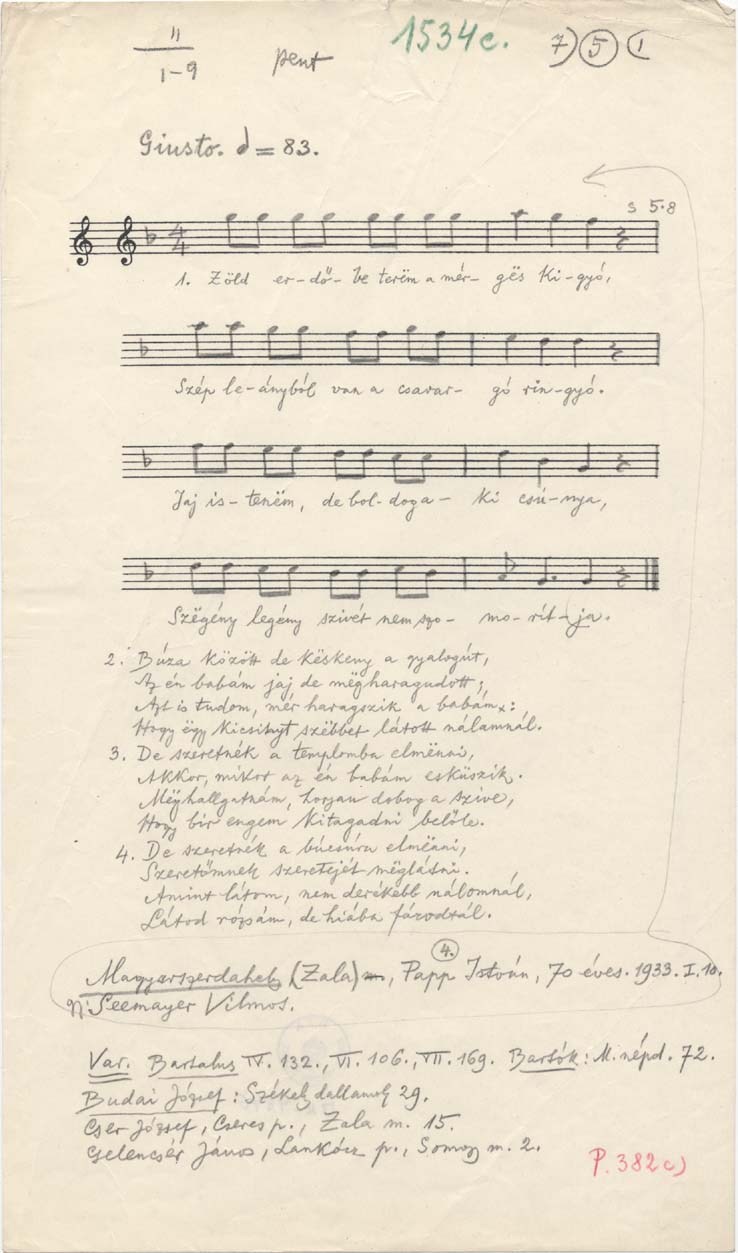 11
1-9
pent
1534c.
7) 5 (1
Giusto. = 83.
s 5.8
4
4
1. Zöld er-dő-be terëm a mér-gës ki-gyó,
Szép le-ányból van a csavar-gó rin-gyó.
Jaj is-teném, de bol-doga-ki csú-nya,
Szëgény legény szivét nem szo-mo-rít-ja.
2. Búza között de këskeny a gyalogút,
Az én babám jaj de mëgharagudott;
Azt is tudom, mér haragszik a babám:
Hogy ëgy kicsinyt szëbbet látott nálamnál.
3. De szeretnék a templomba elmënni,
Akkor, mikor az én babám esküszik.
Mëghallgatnám, horjan dobog a szive,
Hogy bir engem kitagadni belőle.
4. De szeretnék a búcsúra elmënni,
Szeretőmnek szeretejét mëglátni.
Amint látom, nem derékebb nálomnál,
Látod rózsám, de hiába fárodtál.
4.
Magyarszerdahely (Zala), Papp István, 70 éves. 1933. I. 10.
Gy: Seemayer Vilmos.
Var. Bartalus IV. 132., VI. 106., VII. 169. Bartók: M. népd. 72.
Budai József: Székely dallamok 29.
Cser József, Cseres p., Zala m. 15.
Gelencsér János, Lankócz p., Somogy m. 2.
P. 382c)